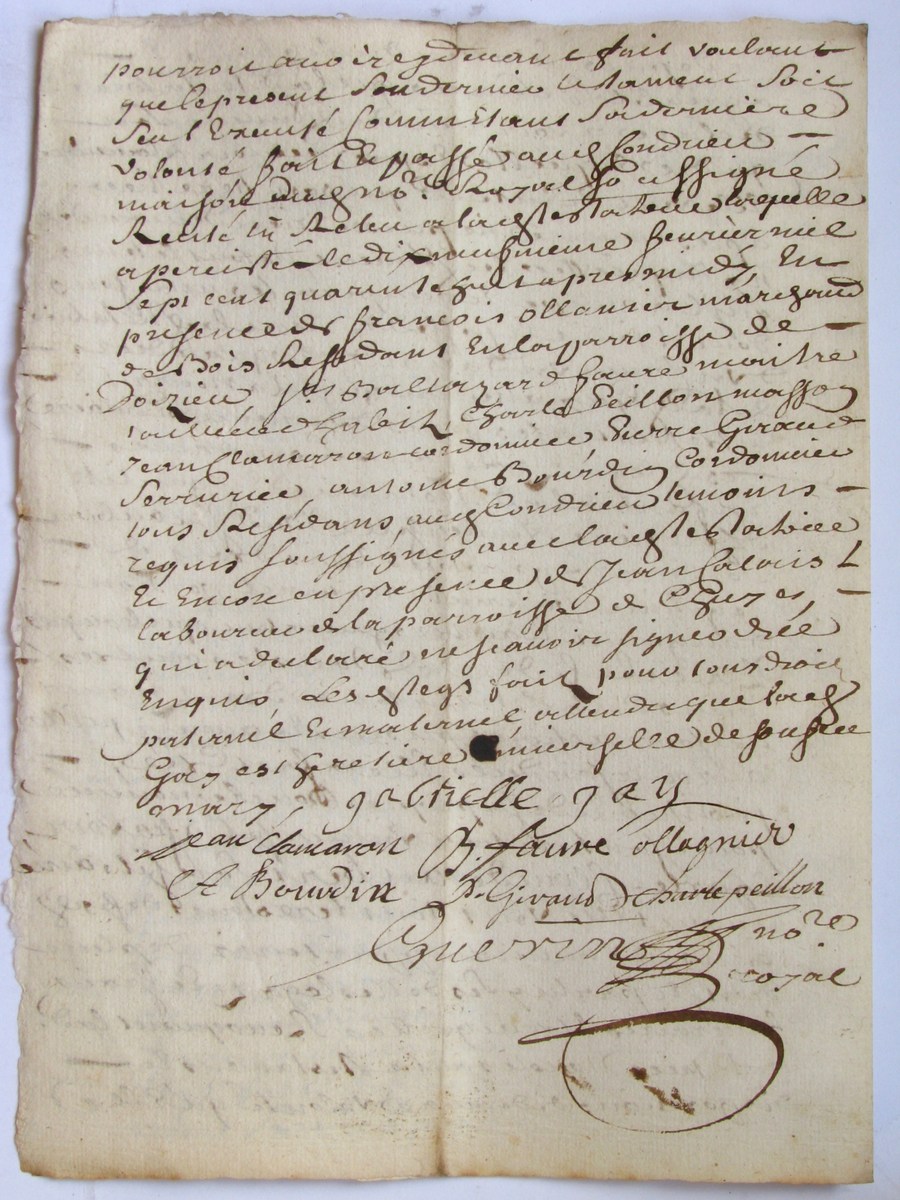 pourroit avoir cydevant fait voulant
que le present son dernier testament soit
seul Executé Comme Etant sa derniere
volonté fait & passé aud Condrieu
maison dud no.re Royal soussigné
leu & Releu a lad testatrice laquelle
a percisté le dix neufvieme fevrier mil
sept cent quarente huit apres midy, En
presence de sr francois ollanier marchand
de Bois Residant En la parroisse de
Doizieu, sr Baltazard faure maitre
tailleur d'habit, Charle Peillon masson
Jean Clamaron cordonnier Pierre Giraud
serrurier, antoine Bourdin Cordonnier
tous Residans aud Condrieu temoins
requis soussignés avec lad testatrice
Et Encore en presence de Jean Calais
laboureur de la parroisse de Chuzes,
qui a declaré ne scavoir signer de ce
Enquis, Les legs fait pour tous droit
paternel & maternel attendu que lad
Gay est heretiere universelle de sond feu
mary, gabrielle gay
Jean Clamaron B. faure ollagnier
A Bourdin P. Giraud Charle peillon
Guerin no.re
royal